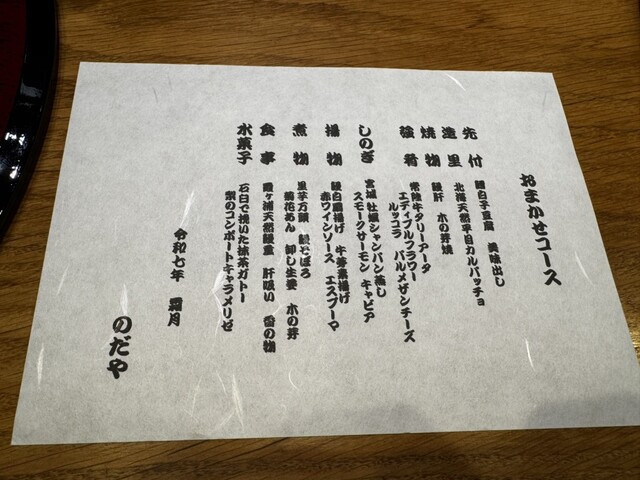 おまかせコース
先付 鰻白子豆腐 美味出し
造里 北海天然平目カルパッチョ
焼物 鰻肝 木の芽焼
強肴 常陸牛タリアータ
エディブルフラワー パルメザンチーズ
ルッコラ
しのぎ 宮城 牡蠣シャンパン蒸し
スモークサーモン キャビア
揚物 鰻白扇揚げ 牛蒡素揚げ
赤ワインソース エスプーマ
煮物 里芋万頭 鰻そぼろ
菊花あん 卸し生姜 木の芽
食事 霞ヶ浦天然鰻重 肝吸い 香の物
水菓子 石臼で挽いた抹茶ガトー
梨のコンポートキャラメリゼ
令和七年 霜月
のだや